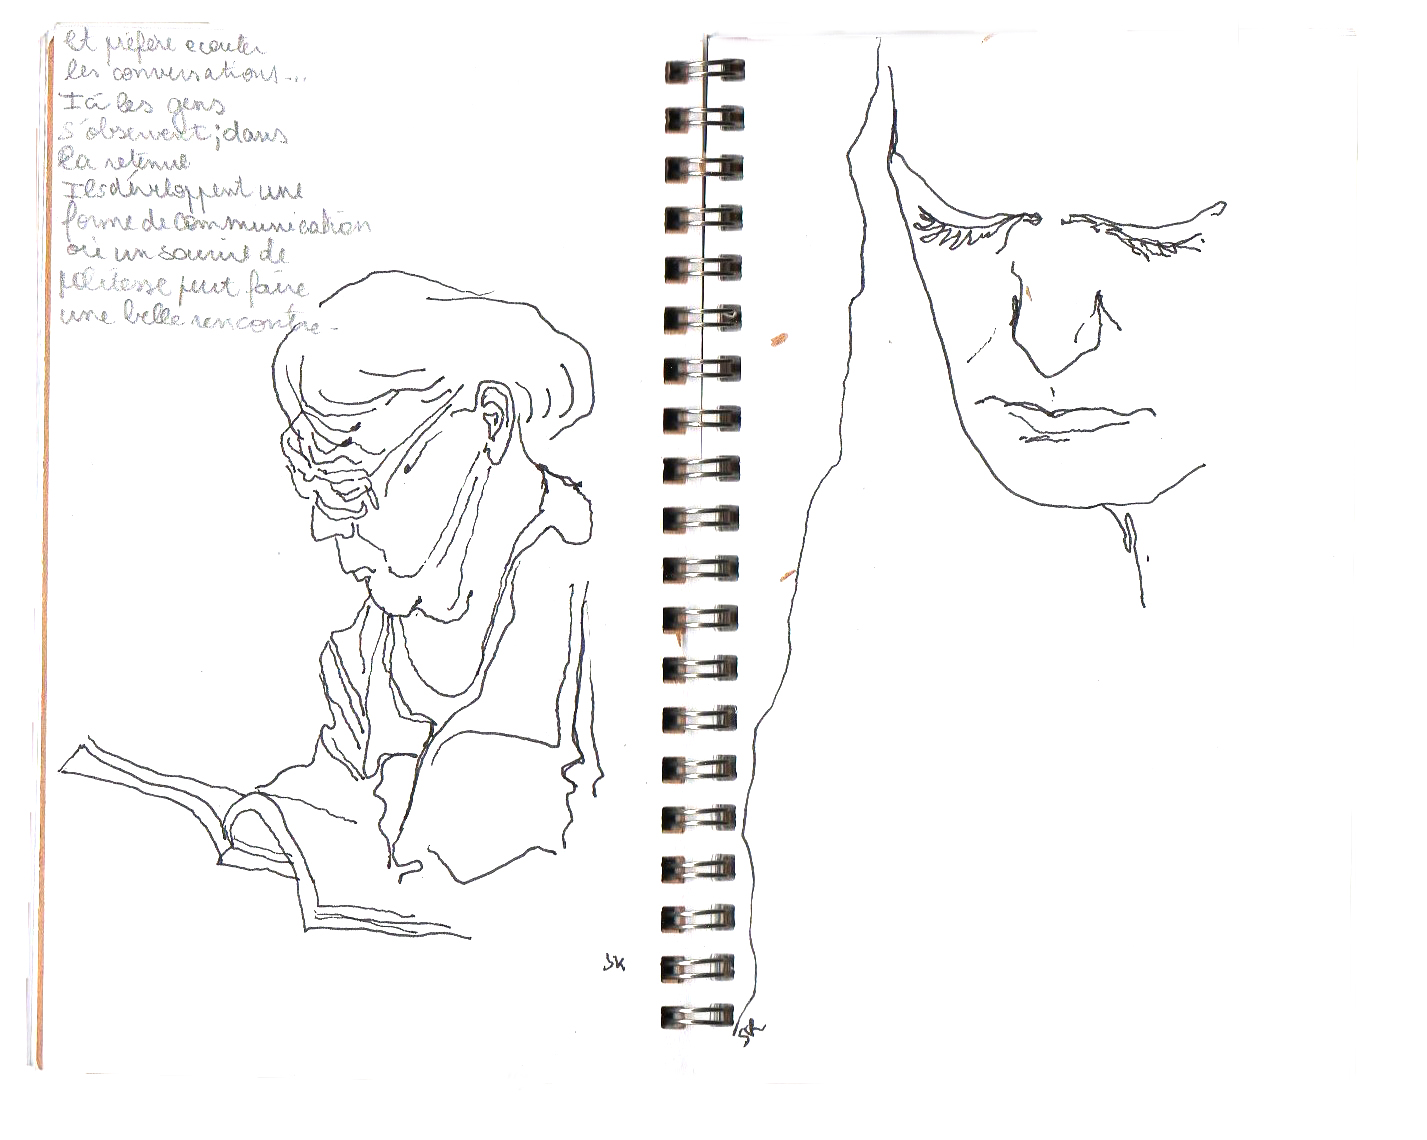 Et préfère ecouter
les conversations...
Ici les gens
s'observent ; dans
la retenue
Ils développent une
forme de communication
où un sourire de
politesse peut faire
une belle rencontre -
SK
SK